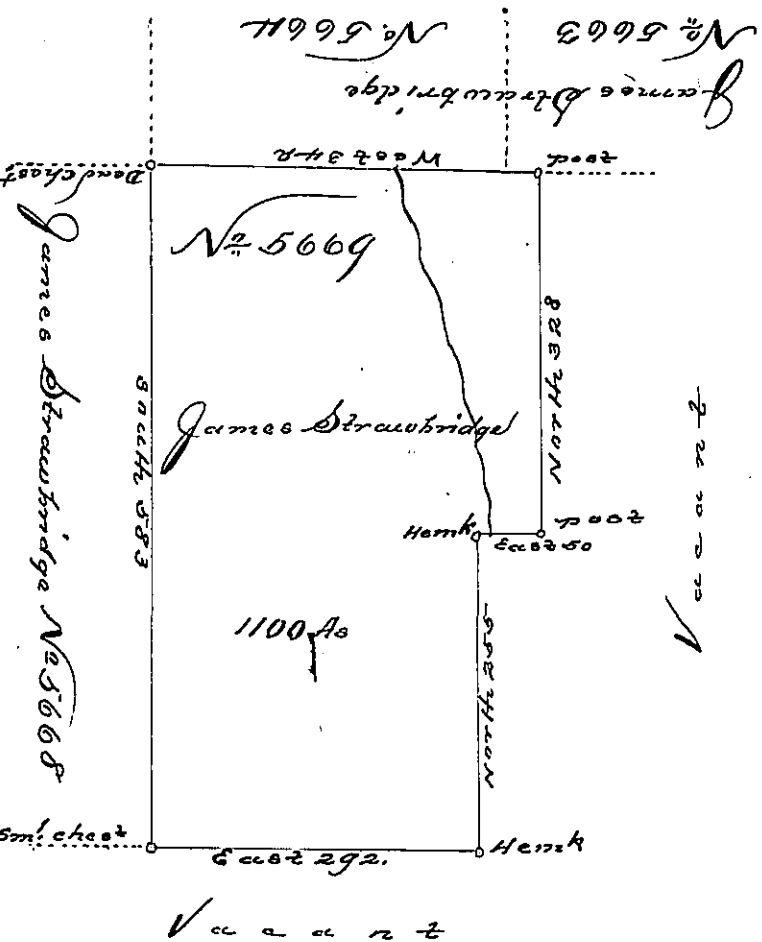 No 5664
No 5663
James Strawbridge
Dead Chest
West 342
post
No 5669
James Strawbridge No 5668
South 583
James Strawbridge
North 328
Vacant
Hemk
East 50
post
1100 As
North 255
Sml chest
East 292.
Hemk
Vacant